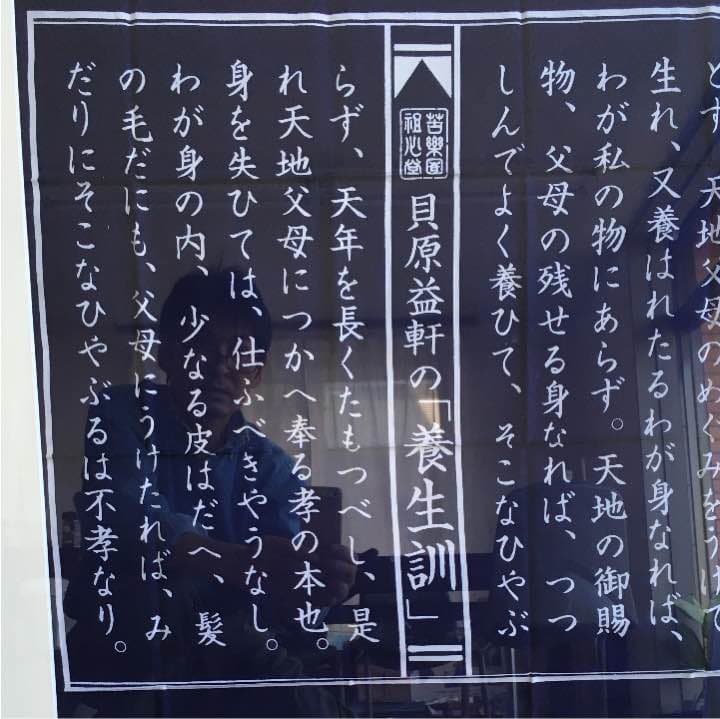 とす、天地父母のめぐみをうけて
生れ、又養はれたるわが身なれば、
わが私の物にあらず。天地の御賜
物、父母の残せる身なれば、つつ
しんでよく養ひて、そこなひやぶ
苦樂園
祖心堂
貝原益軒の「養生訓」
らず、天年を長くたもつべし、是
れ天地父母につかへ奉る孝の本也。
身を失ひては、仕ふべきやうなし。
わが身の内、少なる皮はだへ、髪
の毛だにも、父母にうけたれば、み
だりにそこなひやぶるは不孝なり。